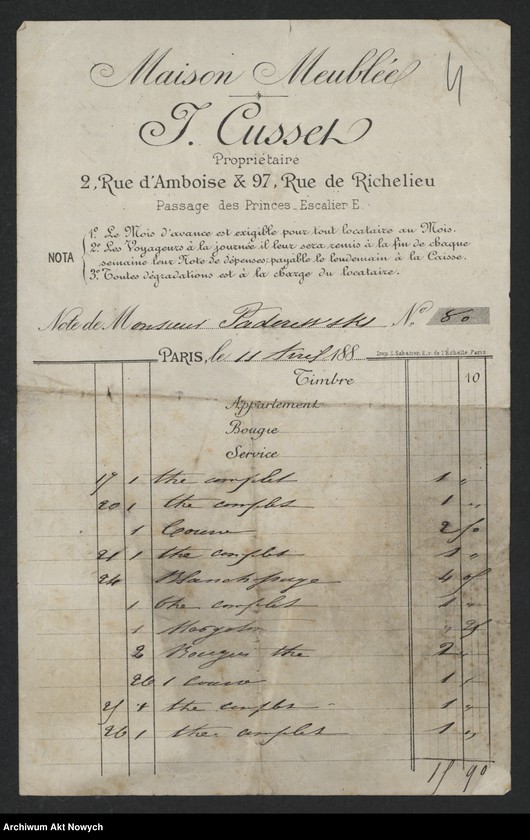 Maison Meublée
J. Cusset
Propriétaire
2, Rue d'Amboise & 97, Rue de Richelieu
Passage des Princes_Escalier E.
NOTA
1º. Le Mois d'avance est exigible pour tout locataire au Mois.
2º. Les Voyageurs à la journée il leur sera remis à la fin de chaque
semaine leur Note de dépenses; payable le lendemain à la Caisse.
3º. Toutes dégradations est à la charge du locataire.
Note de Monsieur Paderewski Nº 80
PARIS, le 11 Avril 188
Timbre 10
Appartement
Bougie
Service
19 1 the complet 1 "
20 1 the complet 1 "
1 2 50
21 1 the complet 1 "
24 Blanchissage 4
1 the complet 1 "
1 "
2 Bougies 2 "
26 1 1
1 the complet 1 "
26 1 the complet 1 "
90
Archiwum Akt Nowych